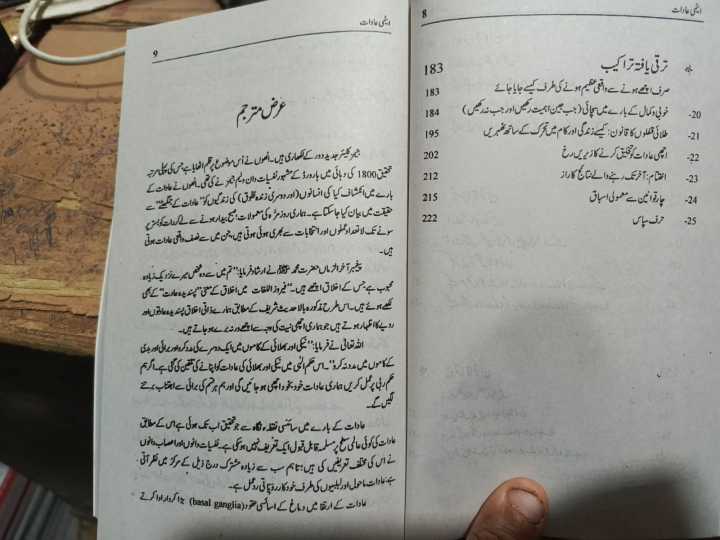 ایٹمی عادات
8
ترقی یافتہ تراکیب 183
صرف اچھے ہونے سے واقعی عظیم ہونے کی طرف کیسے جایا جائے 183
20- خوبی و کمال کے بارے میں سچائی (جب جین اہمیت رکھیں اور جب نہ رکھیں) 184
21- طلائی قفلوں کا قانون: کیسے زندگی اور کام میں تحرک کے ساتھ ٹھہریں 195
22- اچھی عادات کو تخلیق کرنے کا زیریں رخ 202
23- اختتام: آخر تک رہنے والے نتائج کا راز 212
24- چار قوانین سے معمولی اسباق 215
25- حرف سپاس 222
ایٹمی عادات
9
عرض مترجم
جیمز کلیئر جدید دور کے لکھاری ہیں۔ انھوں نے اُس موضوع پر قلم اٹھایا ہے جس کی پہلی مرتبہ
تحقیق 1800 کی دہائی میں ہارورڈ کے مشہور نفسیات دان ولیم جیمز نے کی تھی۔ انھوں نے عادات کے
بارے میں انکشاف کیا کہ انسانوں (اور دوسری زندہ مخلوق) کی زندگیوں کو "عادات کے جمگھٹے" سے
حقیقت میں بیان کیا جا سکتا ہے۔ ہماری روز مرہ کی معمولات؛ صبح بیدار ہونے سے لے کر رات کو بستر پر
سونے تک لاتعداد عملوں اور انتخابات سے بھری ہوئی ہوتی ہیں، جن میں سے نصف واقعی عادات ہوتی
ہیں۔
پیغمبر آخر الزماں حضرت محمد ﷺ نے ارشاد فرمایا: "تم میں سے وہ شخص میرے نزدیک زیادہ
محبوب ہے جس کے اخلاق اچھے ہیں۔" فیروز اللغات میں اخلاق کے معنی "پسندیدہ عادت" کے بھی
لکھے ہوئے ہیں۔ اس طرح مذکورہ بالا حدیث شریف کے مطابق ہمارے ذاتی اخلاق پسندیدہ عادتوں اور
رویے کا اظہار ہوتے ہیں جو ہماری اچھی نیت کی وجہ سے اچھے ورنہ برے ہو جاتے ہیں۔
اللہ تعالیٰ نے فرمایا: "نیکی اور بھلائی کے کاموں میں ایک دوسرے کی مدد کرو اور برائی اور بدی
کے کاموں میں مدد نہ کرو"۔ اس حکم الٰہی میں نیکی اور بھلائی کی عادات کو اپنانے کی تلقین کی گئی ہے۔ اگر ہم
حکم ربی پر عمل کریں ہماری عادات خود بخود اچھی ہو جائیں گی اور ہم ہر قسم کی برائی سے اجتناب برتنے
لگیں گے۔
عادات کے بارے میں سائنسی نقطہ نگاہ سے جو تحقیق اب تک ہوئی ہے اس کے مطابق
عادات کی کوئی عالمی سطح پر مسلمہ قابل قبول ایک تعریف نہیں ہو سکی ہے۔ نفسیات دانوں اور اعصاب دانوں
نے اس کی مختلف تعریفیں کی ہیں؛ تاہم سب سے زیادہ مشترک درج ذیل کے مرکز میں نظر آتی
ہے: عادات ماحول اور لمبیوں کی طرف خود کار رویاتی ردعمل ہے۔
عادات کے ارتقا میں دماغ کے اساسی عقود (basal ganglia) بڑا کردار ادا کرتے